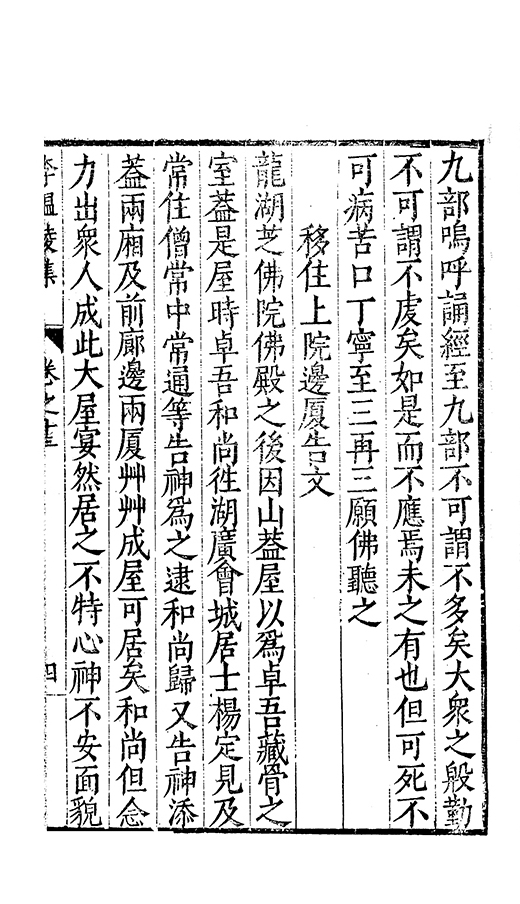 九部嗚呼誦經至九部不可謂不多矣大衆之殷勤
不可謂不虔矣如是而不應焉未之有也但可死不
可病苦口丁寧至三再三願佛聽之
移住上院邊厦告文
龍湖芝佛院佛殿之後因山葢屋以爲卓吾藏骨之
室葢是屋時卓吾和尚徃湖廣會城居士楊定見及
常住僧常中常通等告神爲之逮和尚歸又告神添
葢兩廂及前廊邊兩厦艸艸成屋可居矣和尚但念
力出衆人成此大屋宴然居之不特心神不安面貌
李温陵集 卷之 四